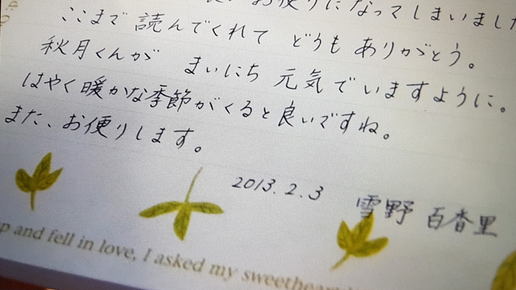 お便りになってしまいました
ここまで 読んでくれて どうも ありがとう。
秋月くんが まいにち 元気でいますように。
はやく暖かな季節がくると良いですね。
また、お便りします。
2013.2.3
雪野 百香里
and fell in love, I asked my sweetheart